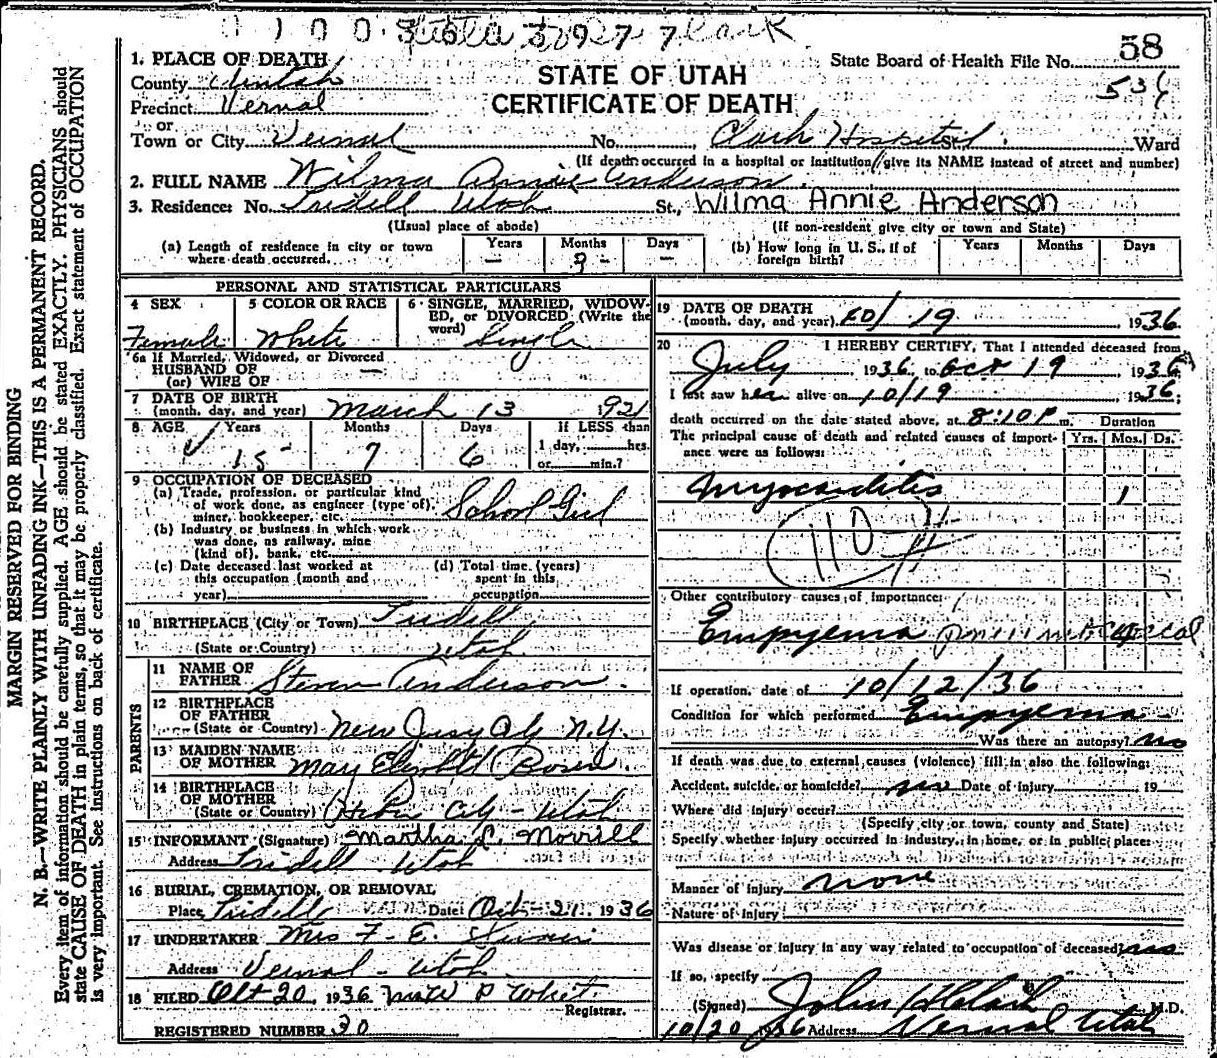 58
State Board of Health File No.
1. PLACE OF DEATH
STATE OF UTAH
County Uintah
CERTIFICATE OF DEATH
Precinct Vernal
or
Town or City Vernal No. Clark Hospital St. Ward
(If death occurred in a hospital or institution give its NAME instead of street and number)
2. FULL NAME Wilma Annie Anderson.
3. Residence: No. Tridell Utah St., Wilma Annie Anderson
(Usual place of abode) (If non-resident give city or town and State)
(a) Length of residence in city or town where death occurred. Years — Months 9 - Days —
(b) How long in U. S., if of foreign birth? Years Months Days
PERSONAL AND STATISTICAL PARTICULARS
4 SEX Female
5 COLOR OR RACE White
6 SINGLE, MARRIED, WIDOWED, or DIVORCED (Write the word) Single
6a If Married, Widowed, or Divorced
HUSBAND OF —
(or) WIFE OF
7 DATE OF BIRTH
(month, day, and year) March 13 1921
8 AGE Years 15 Months 7 Days 6 If LESS than 1 day, hrs. or min.?
9 OCCUPATION OF DECEASED
(a) Trade, profession, or particular kind of work done, as engineer (type of), miner, bookkeeper, etc. School Girl
(b) Industry or business in which work was done, as railway, mine (kind of), bank, etc.
(c) Date deceased last worked at this occupation (month and year)
(d) Total time (years) spent in this occupation
10 BIRTHPLACE (City or Town) Tridell
(State or Country) Utah
PARENTS
11 NAME OF FATHER Steven Anderson.
12 BIRTHPLACE OF FATHER
(State or Country) New Jersy City N.Y.
13 MAIDEN NAME OF MOTHER May Elizabeth
14 BIRTHPLACE OF MOTHER
(State or Country) Heber City - Utah
15 INFORMANT (Signature) Martha L. Morrill
Address Tridell Utah
16 BURIAL, CREMATION, OR REMOVAL
Place Tridell Date Oct - 21. 1936
17 UNDERTAKER Mrs F. E.
Address Vernal - Utah
18 FILED Oct 20, 1936
Registrar.
REGISTERED NUMBER 30
19 DATE OF DEATH
(month, day, and year) 10/ 19, 1936.
20 I HEREBY CERTIFY, That I attended deceased from
July 1936, to Oct 19 1936
I last saw her alive on 10/19 1936;
death occurred on the date stated above, at 8:10 P m. Duration
The principal cause of death and related causes of importance were as follows: Yrs. Mos. Ds.
Myocarditis 1
110
Other contributory causes of importance:
Empyema pneumococcal
If operation, date of 10/12/36
Condition for which performed Empyema
Was there an autopsy? no
If death was due to external causes (violence) fill in also the following:
Accident, suicide, or homicide? no Date of injury 19
Where did injury occur?
(Specify city or town, county and State)
Specify whether injury occurred in industry, in home, or in public place:
Manner of injury none
Nature of injury
Was disease or injury in any way related to occupation of deceased? no
If so, specify
(Signed) John H Clark M.D.
10/20 1936 Address Vernal Utah
MARGIN RESERVED FOR BINDING
N. B.—WRITE PLAINLY WITH UNFADING INK—THIS IS A PERMANENT RECORD.
Every item of information should be carefully supplied. AGE should be stated EXACTLY. PHYSICIANS should
state CAUSE OF DEATH in plain terms, so that it may be properly classified. Exact statement of OCCUPATION
is very important. See instructions on back of certificate.